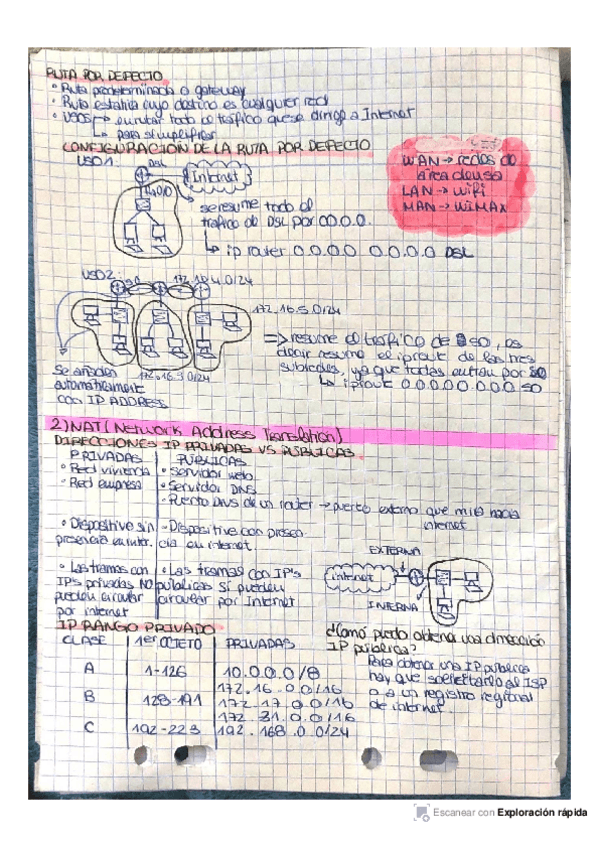 RUTA POR DEFECTO
• Ruta predeterminada o gateway
• Ruta estática cuyo destino es cualquier red
• USOS → enrutar todo el tráfico que se dirige a Internet
↳ para simplificar
CONFIGURACIÓN DE LA RUTA POR DEFECTO
USO 1:
DSL
Internet
se resume todo el
tráfico de DSL por 0.0.0.0.
↳ ip router 0.0.0.0 0.0.0.0 DSL
WAN → redes de
área
LAN → Wifi
MAN → WIMAX
USO 2:
S0
172.16.4.0/24
172.16.5.0/24
=> resume el tráfico de S0, es
decir resume el iprout de las tres
subredes, ya que todas entran por S0
↳ iprout 0.0.0.0 0.0.0.0 S0
Se añaden
automáticamente
con IP ADDRESS
172.16.3.0/24
2) NAT (Network Address Translation)
DIRECCIONES IP PRIVADAS VS PUBLICAS
PRIVADAS PÚBLICAS
• Red vivienda • Servidor web
• Red empresa • Servidor DNS
- Puerto de un router → puerto externo que mira hacia
internet
• Dispositivo sin - Dispositivo con presen
presencia en inter. cia en internet
• Las tramas con • Las tramas con IP's
IP's privadas NO públicas sí pueden
pueden circular circular por Internet
por internet
EXTERNA
internet
INTERNA
IP RANGO PRIVADO
CLASE 1er OCTETO PRIVADAS
A 1-126 10.0.0.0/8
B 128-191 172.16.0.0/16
172.17.0.0/16
172.31.0.0/16
C 192-223 192.168.0.0/24
¿Cómo puedo obtener una dirección
IP pública?
Para obtener una IP pública
hay que solicitarlo al ISP
o a un registro regional
de internet.
Escanear con Exploración rápida